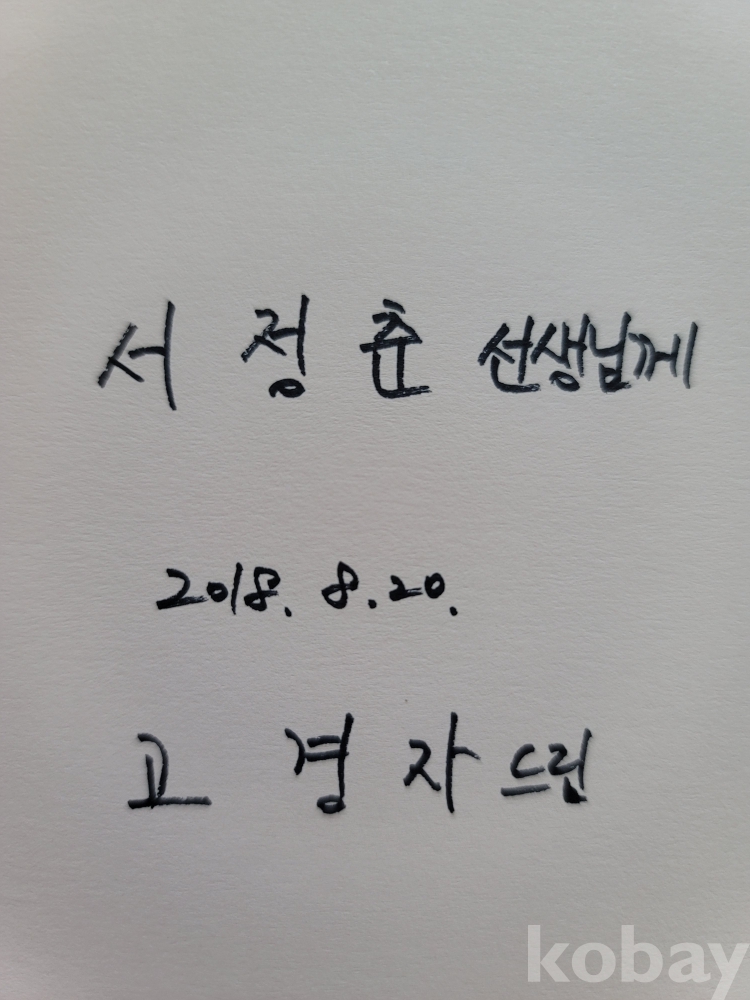 서 정 춘 선생님께
2018. 8. 20.
고 경 자 드린
kobay